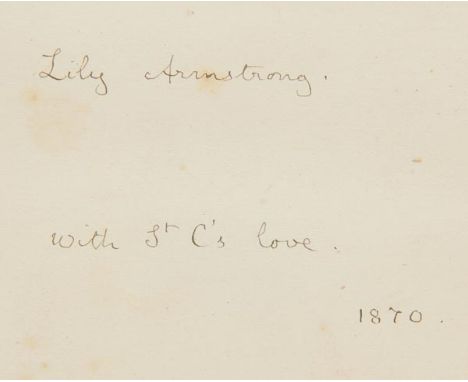 Lily Armstrong.
with St C's love.
1870.